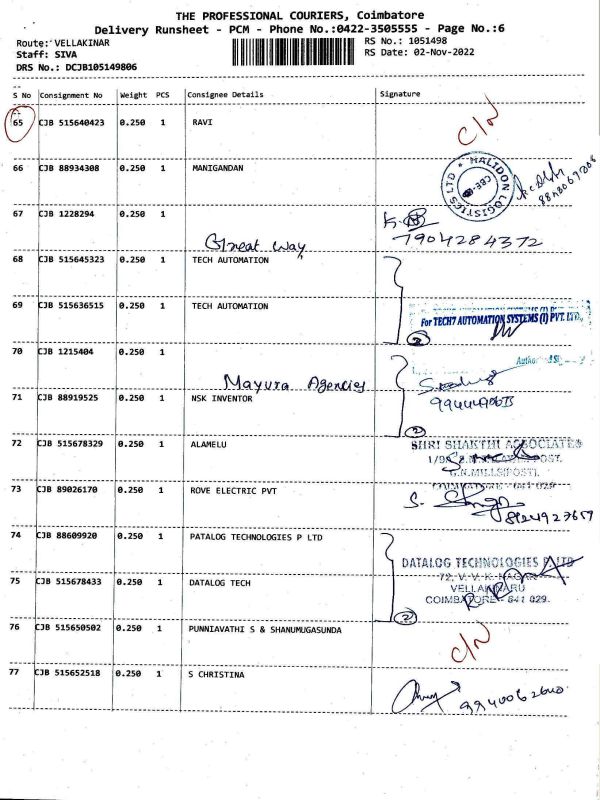 THE PROFESSIONAL COURIERS, Coimbatore
Delivery Runsheet - PCM - Phone No.:0422-3505555 - Page No.:6
Route: VELLAKINAR
RS No.: 1051498
Staff: SIVA
RS Date: 02-Nov-2022
DRS No.: DCJB105149806
S No Consignment No Weight PCS Consignee Details Signature
65 CJB 515640423 0.250 1 RAVI C/N
66 CJB 88934308 0.250 1 MANIGANDAN
HALIDON LOGISTICS LTD
67 CJB 1228294 0.250 1
Great way
7904284372
68 CJB 515645323 0.250 1 TECH AUTOMATION
69 CJB 515636515 0.250 1 TECH AUTOMATION
For TECH7 AUTOMATION SYSTEMS (I) PVT. LTD.,
2
70 CJB 1215404 0.250 1
Mayura Agencies
71 CJB 88919525 0.250 1 NSK INVENTOR
2
72 CJB 515678329 0.250 1 ALAMELU
SHRI SHAKTHI ASSOCIATES
73 CJB 89026170 0.250 1 ROVE ELECTRIC PVT
74 CJB 88609920 0.250 1 PATALOG TECHNOLOGIES P LTD
DATALOG TECHNOLOGIES P LTD
72, V. V. K. NAGAR
75 CJB 515678433 0.250 1 DATALOG TECH
VELLAKINARU
COIMBATORE - 641 029.
2
76 CJB 515650502 0.250 1 PUNNIAVATHI S & SHANUMUGASUNDA C/N
77 CJB 515652518 0.250 1 S CHRISTINA